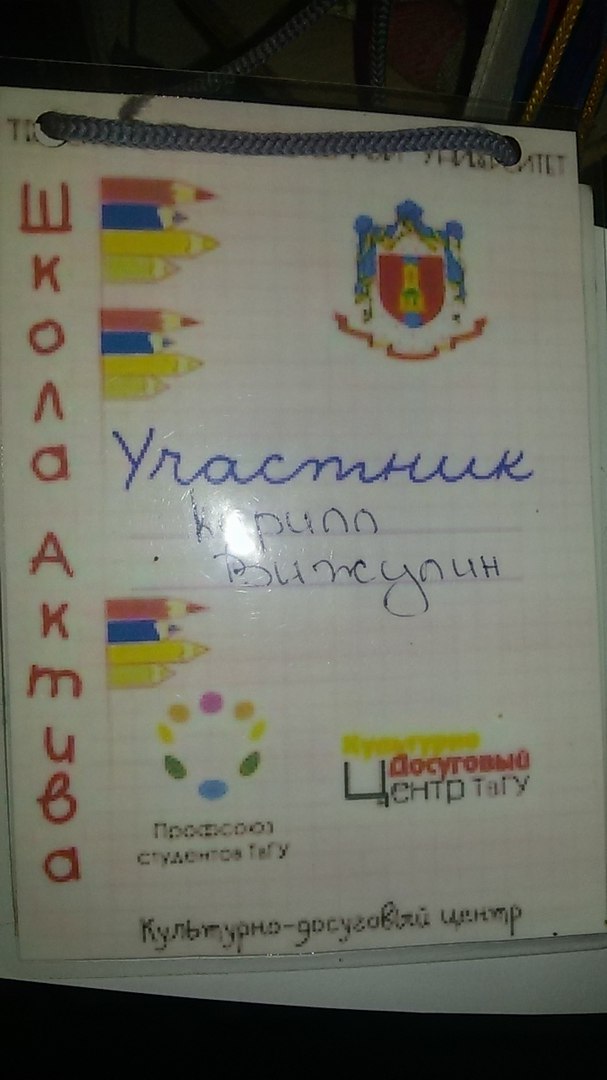 УНИВЕРСИТЕТ
Школа Актива
Участник
Кирилл
Вижулин
Профсоюз
студентов ТвГУ
Культурно
Досуговый
Центр ТвГУ
Культурно-досуговый центр